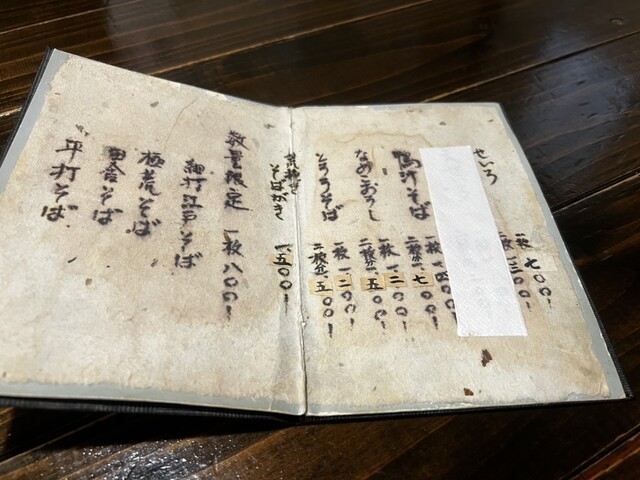 せいろ
一枚 七〇〇!
二枚 一三〇〇!
鴨汁そば
一枚
二枚分 一、七〇〇!
なめこおろし
一枚 一、二〇〇!
二枚分 一、五〇〇!
とろろそば
一枚 一、二〇〇!
二枚分 一、五〇〇!
そばがき
一、五〇〇!
数量限定 一枚 八〇〇!
細打江戸そば
極荒そば
田舎そば
平打そば